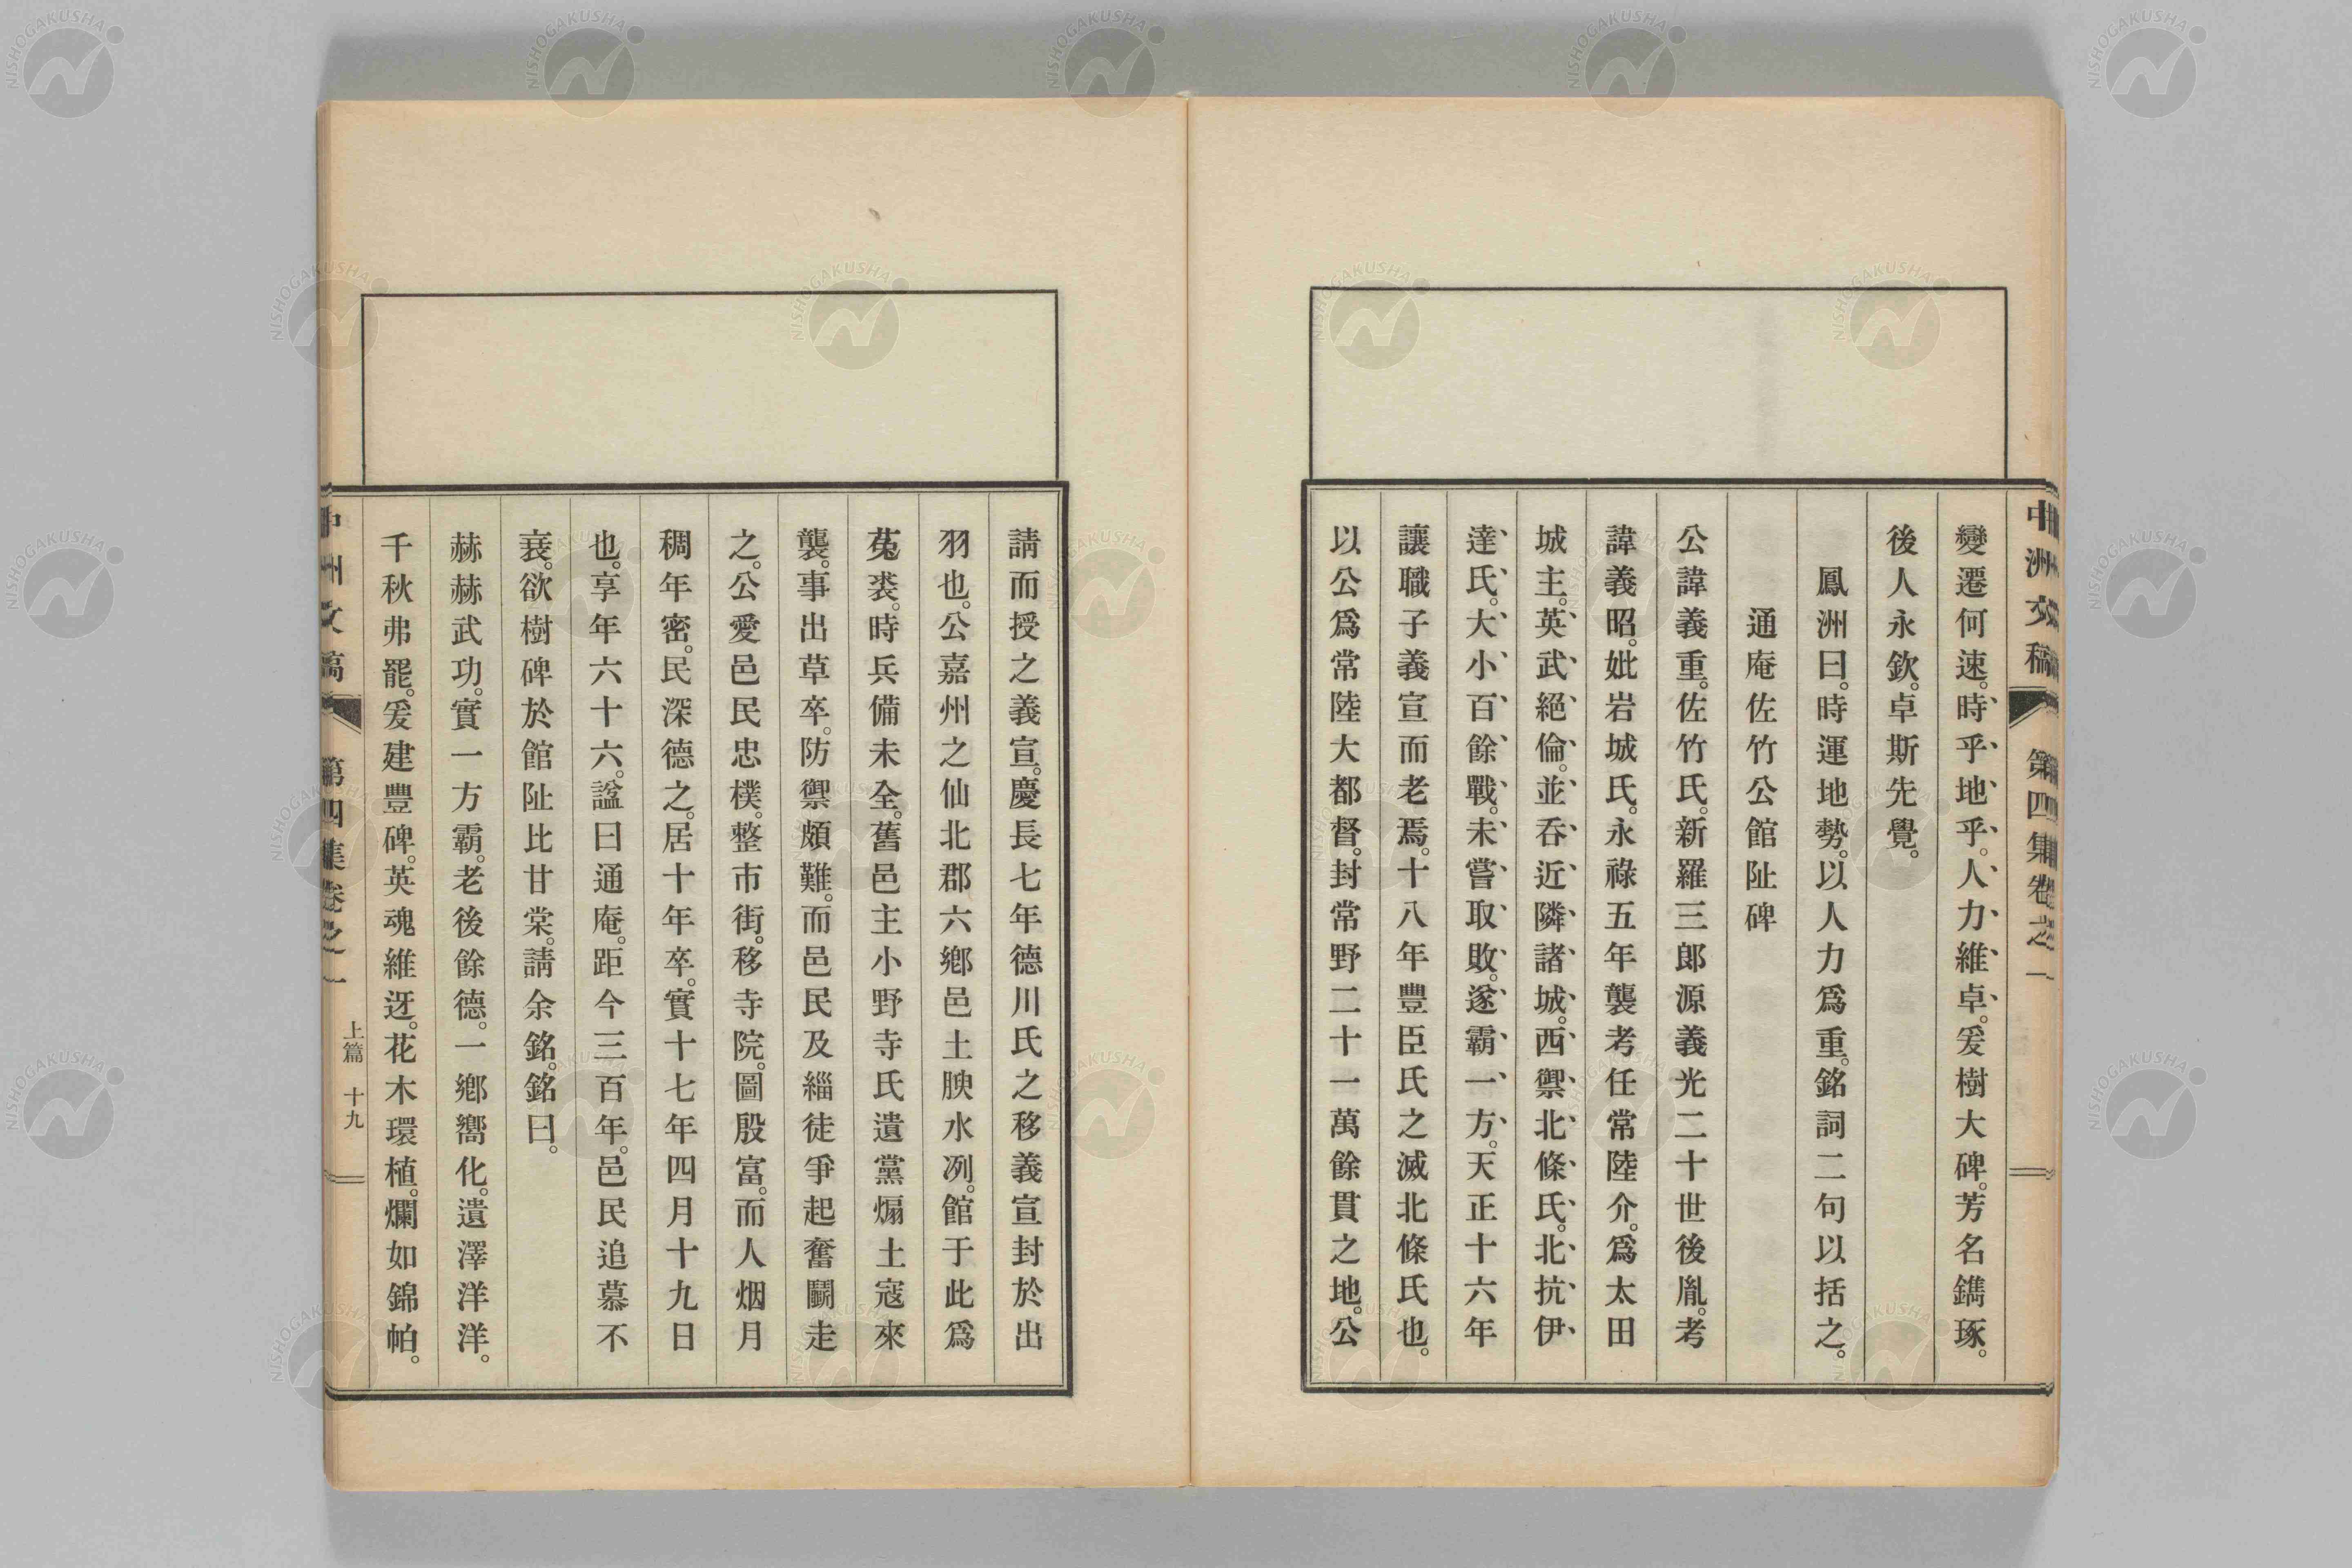 中洲文稿 第四集卷之一
變遷何速。時乎地乎。人力維卓。爰樹大碑。芳名鐫琢。
後人永欽。卓斯先覺。
鳳洲曰。時運地勢。以人力爲重。銘詞二句以括之。
通庵佐竹公館阯碑
公諱義重。佐竹氏。新羅三郎源義光二十世後胤。考
諱義昭。妣岩城氏。永祿五年襲考任常陸介。爲太田
城主。英武絕倫。並呑近隣諸城。西禦北條氏。北抗伊
達氏。大小百餘戰。未嘗取敗。遂霸一方。天正十六年
讓職子義宣而老焉。十八年豐臣氏之滅北條氏也。
以公爲常陸大都督。封常野二十一萬餘貫之地。公
請而授之義宣。慶長七年德川氏之移義宣封於出
羽也。公嘉州之仙北郡六鄕邑土腴水冽。館于此爲
菟裘。時兵備未全。舊邑主小野寺氏遺黨煽土寇來
襲。事出草卒。防禦頗難。而邑民及緇徒爭起奮鬪走
之。公愛邑民忠樸。整市街。移寺院。圖殷富。而人烟月
稠年密。民深德之。居十年卒。實十七年四月十九日
也。享年六十六。諡曰通庵。距今三百年。邑民追慕不
衰。欲樹碑於館阯比甘棠。請余銘。銘曰。
赫赫武功。實一方霸。老後餘德。一鄕嚮化。遺澤洋洋。
千秋弗罷。爰建豐碑。英魂維迓。花木環植。爛如錦帕。
中洲文稿 第四集卷之一 上篇 十九
NISHOGAKUSHA